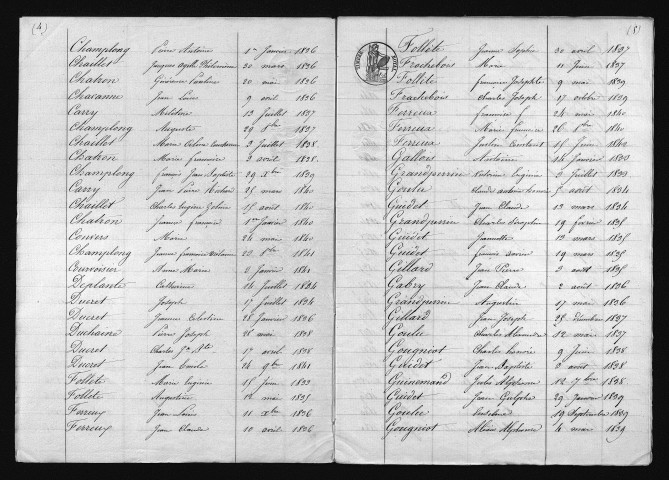 (4)
Champlong Pierre Antoine 1er Janvier 1836
Chaillet Jacques Philomène 20 mars 1836
Chatron Pauline 20 mai 1836
Chavanne Jean Louis 9 avril 1836
Carry 13 Juillet 1837
Champlong Auguste 29 8bre 1837
Chaillet Marie 2 Juillet 1838
Chatron Marie françoise 2 avril 1838
Champlong françois Jean Baptiste 29 Xbre 1839
Carry Jean Pierre 25 mars 1840
Chaillet Charles Eugène 15 août 1840
Chatron Jeanne françoise 1er Janvier 1840
Convers Marie 24 mai 1840
Champlong Jeanne françoise 22 8bre 1841
Courvoisier Anne Marie 2 Janvier 1841
Deplante Catherine 14 Juillet 1834
Ducret Joseph 17 Juillet 1834
Ducret Jeanne Célestine 28 Janvier 1836
Duchaine Pierre Joseph 28 mai 1838
Ducret Charles Jn Bte 17 avril 1838
Ducret Jean Emile 24 9bre 1841
Follète Marie Eugénie 15 Juin 1833
Follète Augustine 12 mai 1835
Ferreux Jean Louis 11 Xbre 1836
Ferreux Jean Claude 10 avril 1836
(5)
Follète Jeanne Sophie 30 avril 1837
Frachebois Marie 11 Juin 1837
Follète françoise Josephte 9 mai 1839
Frachebois Charles Joseph 17 octobre 1839
Ferreux françoise 24 mai 1840
Ferreux Marie françoise 26 8bre 1840
Ferreux Justin Constant 15 Juin 1842
Gallois Antoine 14 Janvier 1833
Grandperrin Victorine Eugénie 2 Juillet 1833
Goulu Claude Antoine 8 août 1834
Guidet Jean Claude 13 mars 1834
Grandperrin Charles Séraphin 19 février 1835
Guidet Jeannette 13 mars 1835
Guidet françois Xavier 19 mars 1835
Gillard Jean Pierre 2 août 1835
Gabry Jean Claude 2 août 1836
Grandperrin Augustin 17 mai 1836
Gillard Jean Joseph 28 Décembre 1837
Goulu Charles Alexandre 12 mai 1837
Gougniot Charles honoré 9 Juin 1838
Guidet Jean Baptiste 2 août 1838
Guinemand Jules Alphonse 12 7bre 1838
Guidet Jean 29 Janvier 1839
Goulu 19 Septembre 1839
Gougniot Alphonse 4 mai 1839